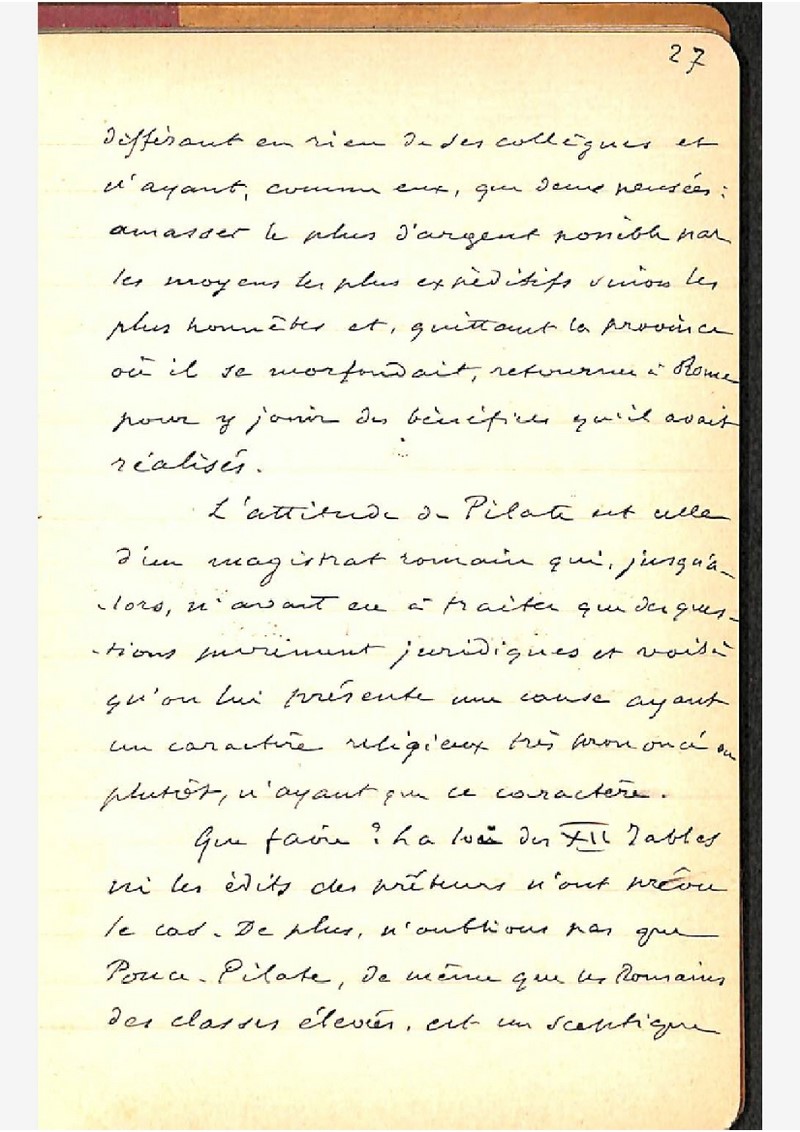 27
différant en rien de ses collègues et
n'ayant, comme eux, que deux pensées :
amasser le plus d'argent possible par
les moyens les plus expéditifs sinon les
plus honnêtes et, quittant la province
où il se morfondait, retourner à Rome
pour y jouir des bénéfices qu'il avait
réalisés.
L'attitude de Pilate est celle
d'un magistrat romain qui, jusqu'a-
-lors, n'avait eu à traiter que des ques-
-tions purement juridiques et voilà
qu'on lui présente une cause ayant
un caractère religieux très prononcé ou
plutôt, n'ayant que ce caractère.
Que faire ? La loi des XII Tables
ni les édits des préteurs n'ont prévu
le cas. De plus, n'oublions pas que
Ponce-Pilate, de même que les Romains
des classes élevées, est un sceptique